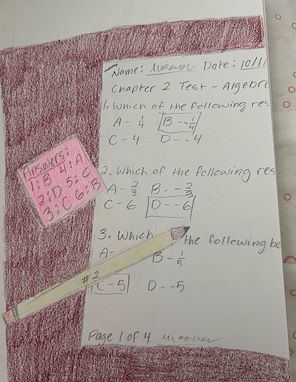 Name: Date: 10/1/
Chapter 2 Test - Algebra
1. Which of the following res
A - 1/4 B - -1/4
C - 4 D - -4
2. Which of the following res
A - 2/3 B - -2/3
C - 6 D - -6
3. Which the following be
A - B - 1/5
C - 5 D - -5
Page 1 of 4
Answers:
1: B 4: A
2: D 5: C
3: C 6: B
#2